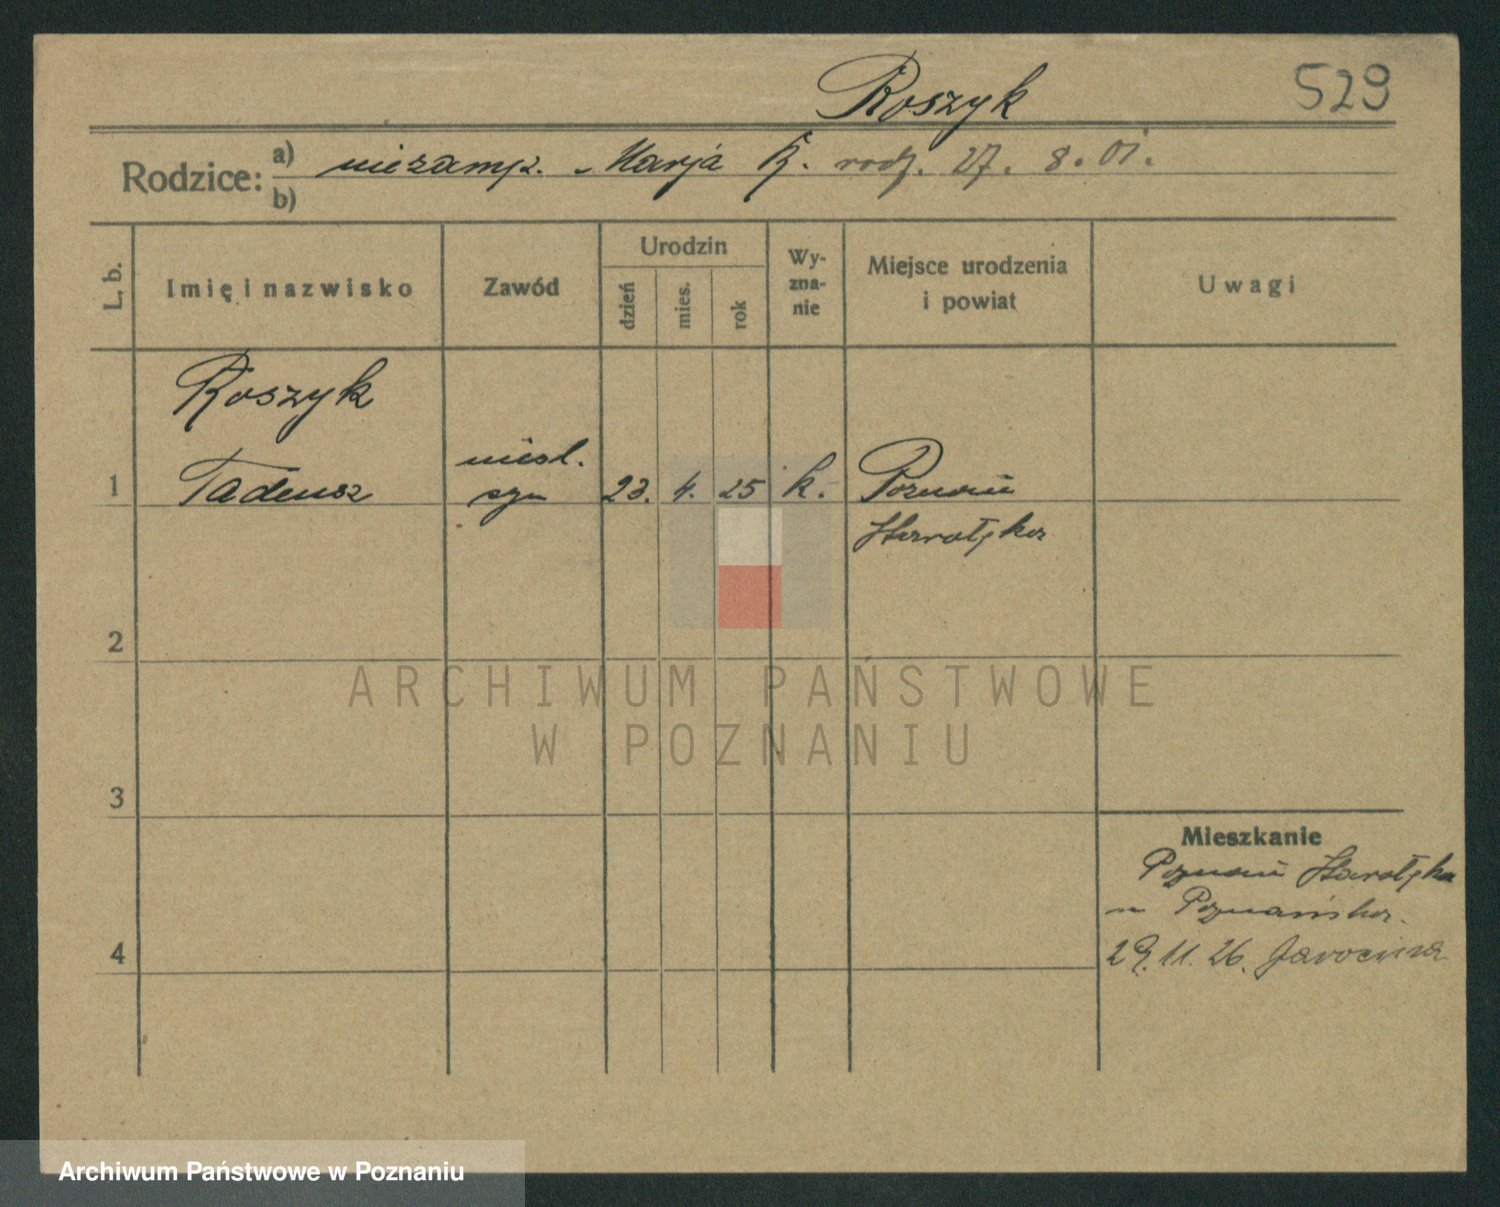 Roszyk
529
Rodzice:
a) niezamęż. Marja R. rodz. 27. 8. 01.
b)
L. b.
Imię i nazwisko
Zawód
Urodzin
dzień
mies.
rok
Wy-
zna-
nie
Miejsce urodzenia
i powiat
Uwagi
Roszyk
1 Tadeusz
nieśl.
syn
23. 4. 25 k.
Poznań
Starołęka
2
ARCHIWUM PAŃSTWOWE
W POZNANIU
3
Mieszkanie
Poznań Starołęka
Poznańska.
4
29. 11. 26.
Archiwum Państwowe w Poznaniu